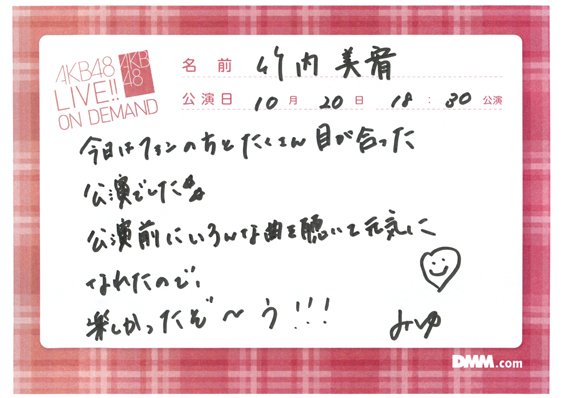 AKB48
LIVE!!
ON DEMAND
AKB
48
名前 竹内美宥
公演日 10月 20日 18:30 公演
今日はファンの方とたくさん目が合った
公演でした
公演前にいろんな曲を聴いて元気に
なれたので、
楽しかったぞ〜う!!!
みゆ
DMM.com